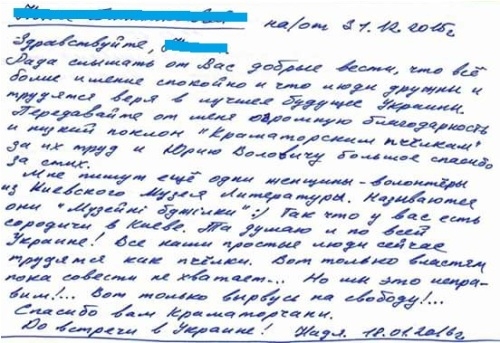 на/от 31.12.2015г
Здравствуйте,
Рада слышать от Вас добрые вести, что всё
более и менее спокойно и что люди дружны и
трудятся веря в лучшее будущее Украины.
Передавайте от меня огромную благодарность
и низкий поклон "Краматорским пчёлкам"
за их труд и Юрию Воловичу большое спасибо
за стих.
Мне пишут ещё одни женщины-волонтёры
из Киевского Музея Литературы. Называются
они "Музейні бджілки" :) Так что у вас есть
сородичи в Киеве. Та думаю и по всей
Украине! Все наши простые люди сейчас
трудятся как пчёлки. Вот только властям
пока совести не хватает... Но мы это испра-
вим!... Вот только вырвусь на свободу!...
Спасибо вам Краматорчани.
До встречи в Украине! Надя. 18.01.2016г